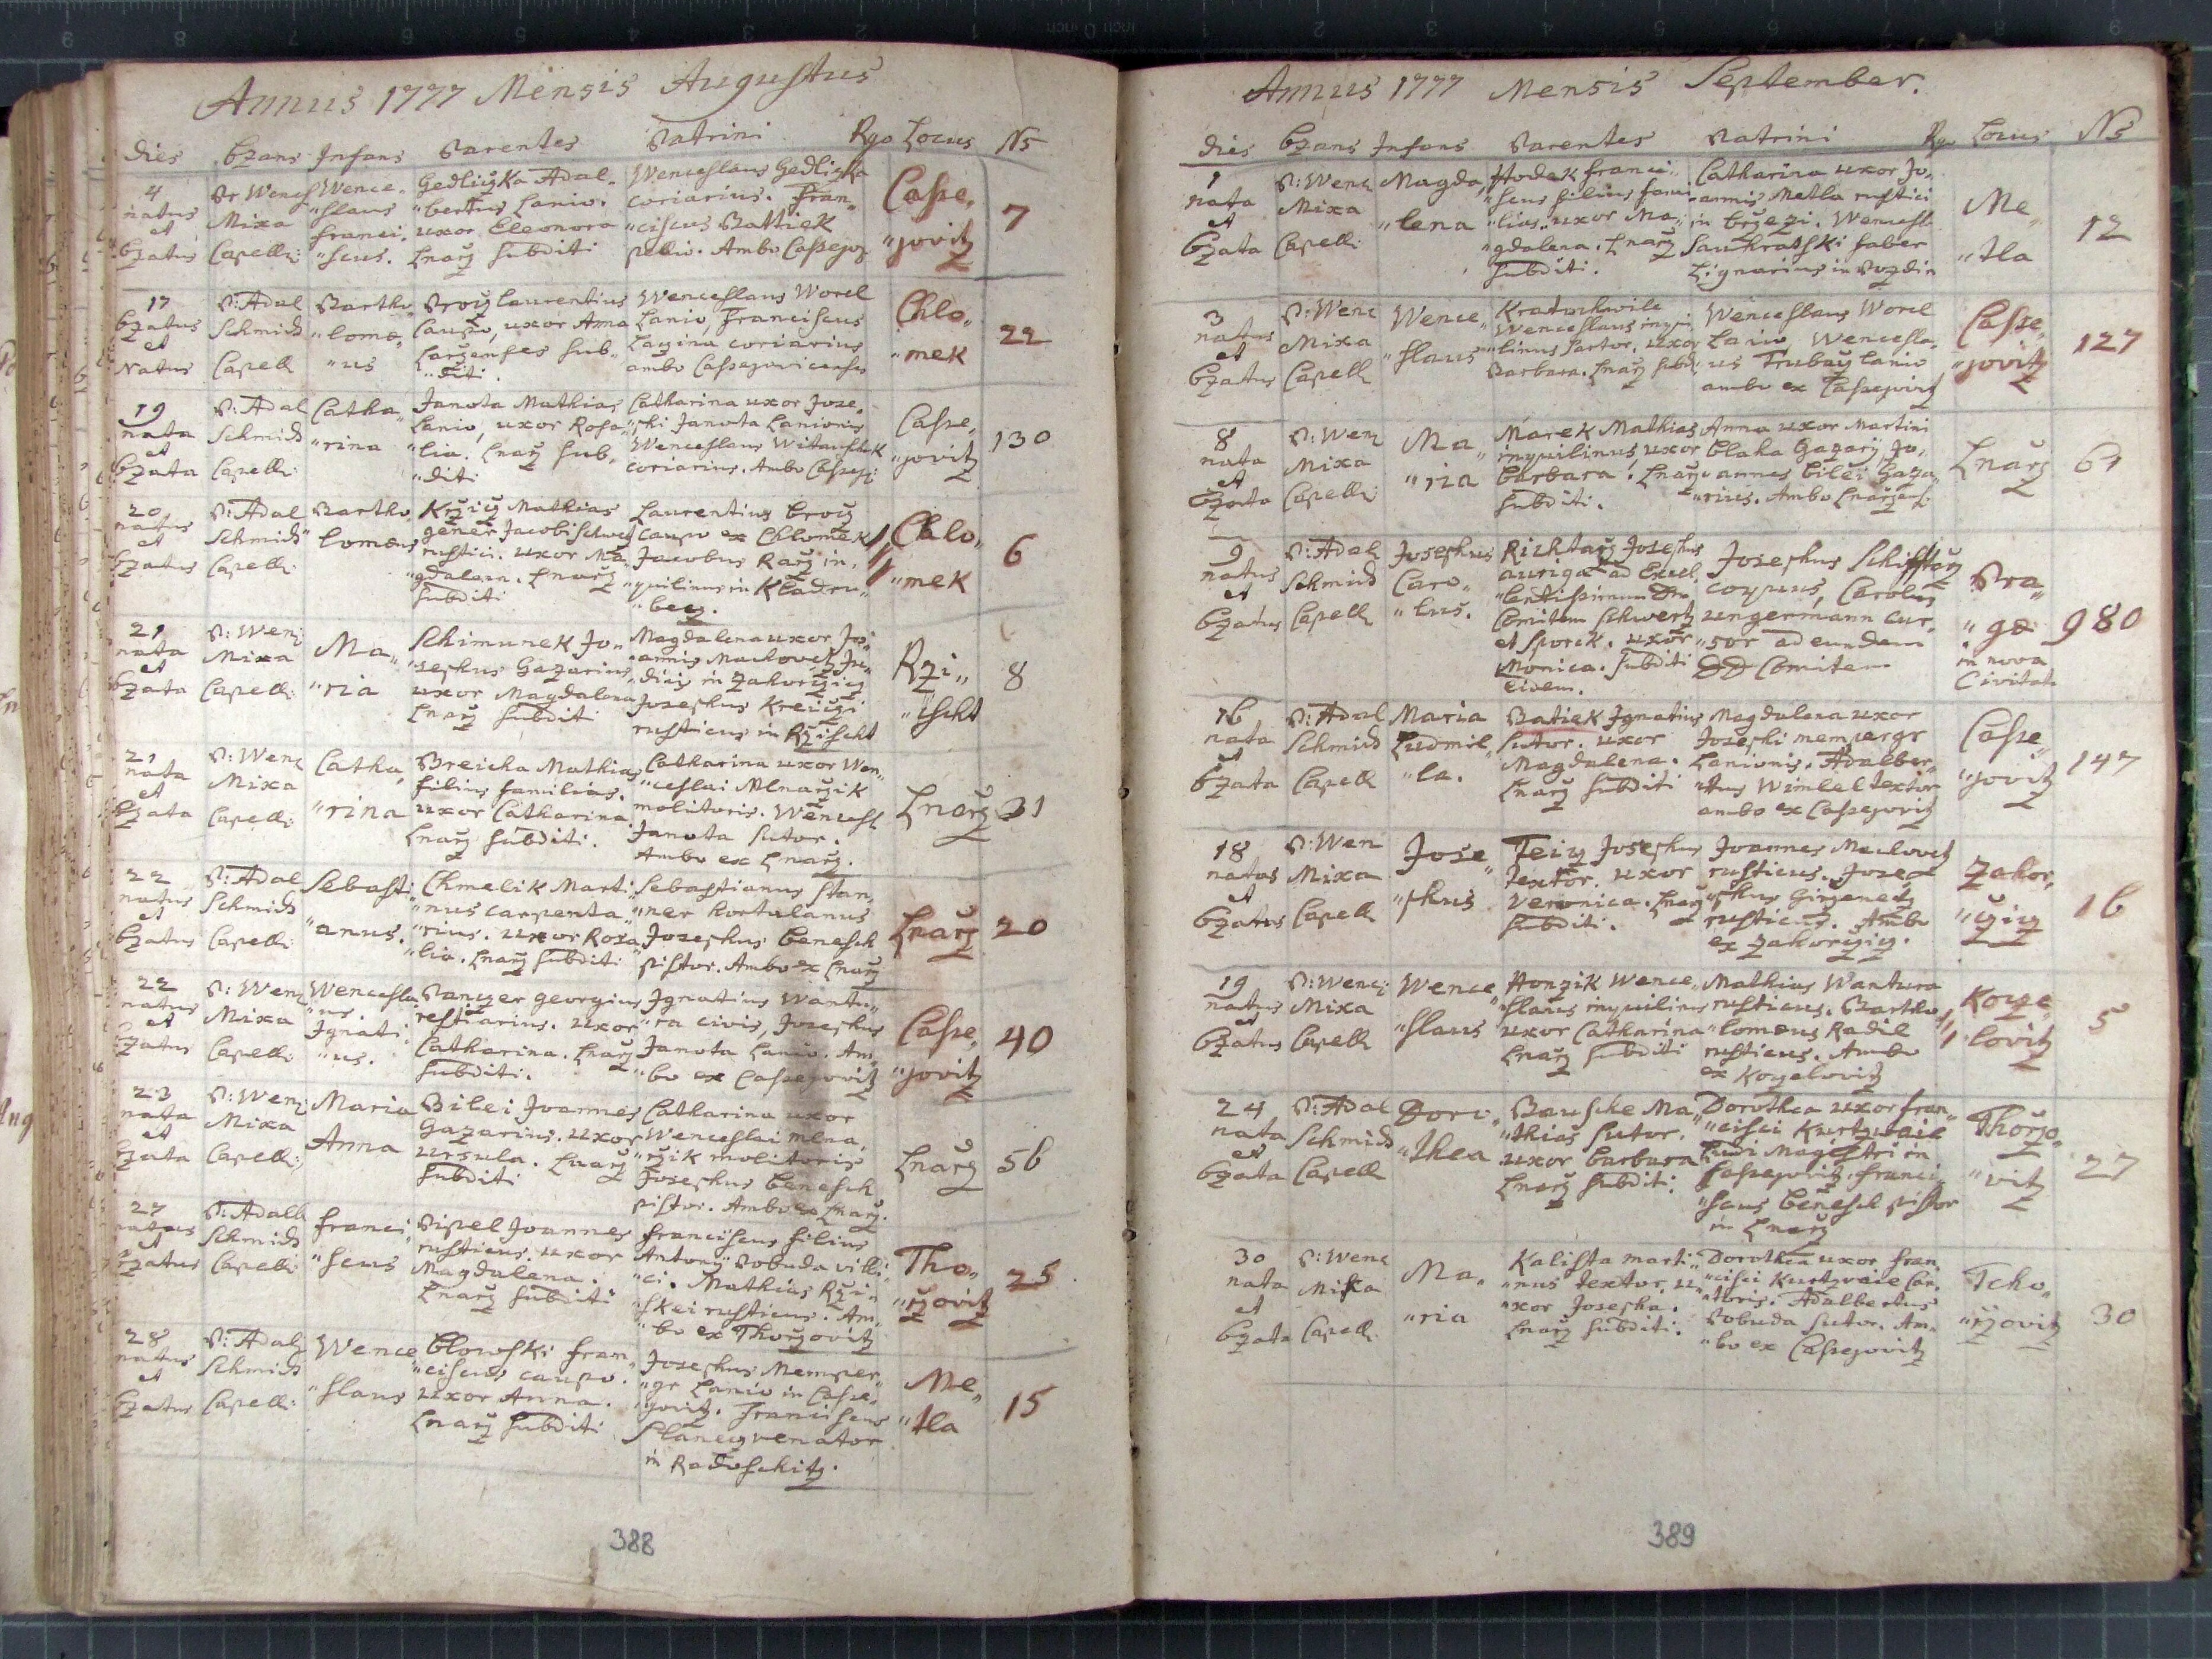 Annus 1777 Mensis Augustus
dies bzans Infans Parentes Patrini Rgo Locus Ns
4 natus et bzatus
Pr Wencſ Mixa Capell:
Wence„ „slaus Franci„ „scus.
Gedliczka Adal„
„bertus Lanio.
uxor Eleonora
Lnarz Subditi
Wenceslaus Gedliczka
coriarius. Fran„
„ciscus Battiek
pellio. Ambo Cassejoz
Casse„ „jovitz
7
17 bzatus et Natus
P: Adal Schmid Capell
Bartho„ „lomæ„ „us
Brocz Laurentius
Caupo, uxor Anna
Larzenses Sub„
„diti.
Wenceslaus Worel
Lanio, Franciscus
Lazina coriarius
ambo Cassejovicenses
Chlo„ „mek
22
19 nata et bzata
P: Adal Schmid Capell:
Catha„ „rina
Janota Mathias
Lanio, uxor Rosa„
„lia. Lnarz Sub„
„diti
Catharina uxor Jose„
„phi Janota Lanionis
Wenceslaus Witanschek
coriarius. Ambo Cassej:
Casse„ „jovitz
130
20 natus et bzatus
P: Adal Schmid Capell:
Bartho„ lomæus
Krziz Mathias
gener Jacobi Schwetz
rustici. uxor Ma„
„gdalena. Lnarz
Subditi
Laurentius Brocz
Caupo ex Chlomek
Jacobus Rarz in„
„quilinus in Kladru„
„becz.
Chlo„ „mek
6
21 nata et bzata
P: Wenc Mixa Capell:
Ma„ „ria
Schimunek Jo„
„sephus Gazarius
uxor Magdalena
Lnarz Subditi
Magdalena uxor Jo„
„annis Machovetz Ju„
„dicis in Zahorzicz
Josephus Kreiczi
rusticus in Rzischt
Rzi„ „scht
8
21 nata et bzata
P: Wenc Mixa Capell:
Catha„ „rina
Breicha Mathias
filius familias.
uxor Catharina.
Lnarz Subditi.
Catharina uxor Wen„
„ceslai Mlnarzik
molitoris. Wencesl
Janota Sutor.
Ambo ex Lnarz.
Lnarz 31
22 natus et bzatus
P: Adal Schmid Capell:
Sebasti„ „anus.
Chmelik Marti„
„nus carpenta„
„rius. uxor Rosa„
„lia. Lnarz Subditi
Sebastianus Stan„
„ner hortulanus
Josephus Benesch
pistor. Ambo ex Lnarz
Lnarz 20
22 natus et bzatus
P: Wenc Mixa Capell:
Wencesla„ „us. Ignati„ „us.
Panczer Georgius
restiarius. uxor
Catharina. Lnarz
Subditi.
Ignatius Wantu„
„ra civis, Josephus
Janota Lanio. Am„
„bo ex Cassejovitz
Casse„ „jovitz
40
23 nata et bzata
P: Wenc Mixa Capell:
Maria Anna
Bilei Joannes
Gazarius. uxor
Ursula. Lnarz
Subditi
Catharina uxor
Wenceslai Mlna„
„rzik molitoris
Josephus Benesch
pistor. Ambo ex Lnarz.
Lnarz 56
27 natus et bzatus
P: Adalb Schmid Capell:
Franci„ „scus
Pipel Joannes
rusticus. uxor
Magdalena.
Lnarz Subditi
Franciscus filius
Antonij Pobuda villi„
„ci. Mathias Rzin„
„skei rusticus. Am„
„bo ex Thorzovitz
Tho„ „rzovitz
25
28 natus et bzatus
P: Adal Schmid Capell:
Wence„ „slaus
Blowski Fran„
„ciscus caupo.
uxor Anna.
Lnarz Subditi
Josephus Memper„
„gr Lanio in Casse„
„jovitz. Franciscus
Slanecz venator
in Radoschitz.
Me„ „tla
15
388
Annus 1777 Mensis September.
dies bzans Infans Parentes Patrini Rgo Locus Ns
1 nata et bzata
P: Wenc Mixa Capell:
Magda„ „lena
Hodek Franci„
„scus filius fami„
„lias. uxor Ma„
„gdalena. Lnarz
Subditi.
Catharina uxor Jo„
„annis Metla rustici
in Brzezi. Wencesl
Saukratski Faber
Lignarius in Pozdin
Me„ „tla
12
3 natus et bzatus
P: Wenc Mixa Capell
Wence„ „slaus
Kratochwile
Wenceslaus inqui„
„linus Sartor, uxor
Barbara. Lnarz Subd:
Wenceslaus Worel
Lanio, Wencesla„
„us Trubacz Lanio
ambo ex Cassejovitz
Casse„ „jovitz
127
8 nata et bzata
P: Wenc Mixa Capell:
Ma„ „ria
Marek Mathias
inquilinus, uxor
Barbara. Lnarz
Subditi.
Anna uxor Martini
Blaha Gazarij, Jo„
„annes Bilei Gaza„
„rius. Ambo Lnarzens:
Lnarz 61
9 natus et bzatus
P: Adal Schmid Capell
Josephus Caro„ „lus.
Richtarz Josephus
auriga ad Excel„
„lentissimum Dnn
Comitem Schwertz
et Sporck. uxor
Monica. Subditi
Eidem.
Josephus Schifftarz
coquus, Carolus
Ungermann cur„
„sor ad eundem
DD Comitem
Pra„ „gæ
in nova
Civitate
980
16 nata et bzata
P: Adal Schmid Capell
Maria Ludmil„ „la.
Batiek Ignatius
Sutor. uxor
Magdalena.
Lnarz Subditi
Magdalena uxor
Josephi mempergr
Lanionis. Adalber„
„tus Wimlel textor
ambo ex Cassejovitz
Casse„ „jovitz
147
18 natus et bzatus
P: Wen Mixa Capell
Jose„ „phus
Feiy Josephus
textor. uxor
Veronica. Lnarz
Subditi.
Joannes Machovetz
rusticus. Jose„
„phus Girzenetz
rusticus. Ambo
ex Zahorzicz.
Zahor„ „zicz
16
19 natus et bzatus
P: Wenc: Mixa Capell
Wence„ „slaus
Honzik Wence„
„slaus inquilinus
uxor Catharina
Lnarz Subditi
Mathias Wantura
rusticus. Bartho„
„lomæus Radil
rusticus. Ambo
ex Kozelovitz
Koze„ „lovitz
5
24 nata et bzata
P: Adal Schmid Capell
Doro„ „thea
Bauschke Ma„
„thias Sutor.
uxor Barbara
Lnarz Subditi.
Dorothea uxor Fran„
„cisci Kurtzweil
Ludi Magistri in
Cassejovitz. Franci„
„scus Benesch pistor
in Lnarz
Thorzo„ „vitz
27
30 nata et bzata
P: Wenc Mixa Capell.
Ma„ „ria
Kalista Marti„
„nus textor. u„
„xor Josepha.
Lnarz Subditi.
Dorothea uxor Fran„
„cisci Kurtzveil Can„
„toris. Adalbertus
Pobuda Sutor. Am„
„bo ex Cassejovitz
Tcho„ „rzovitz
30
389